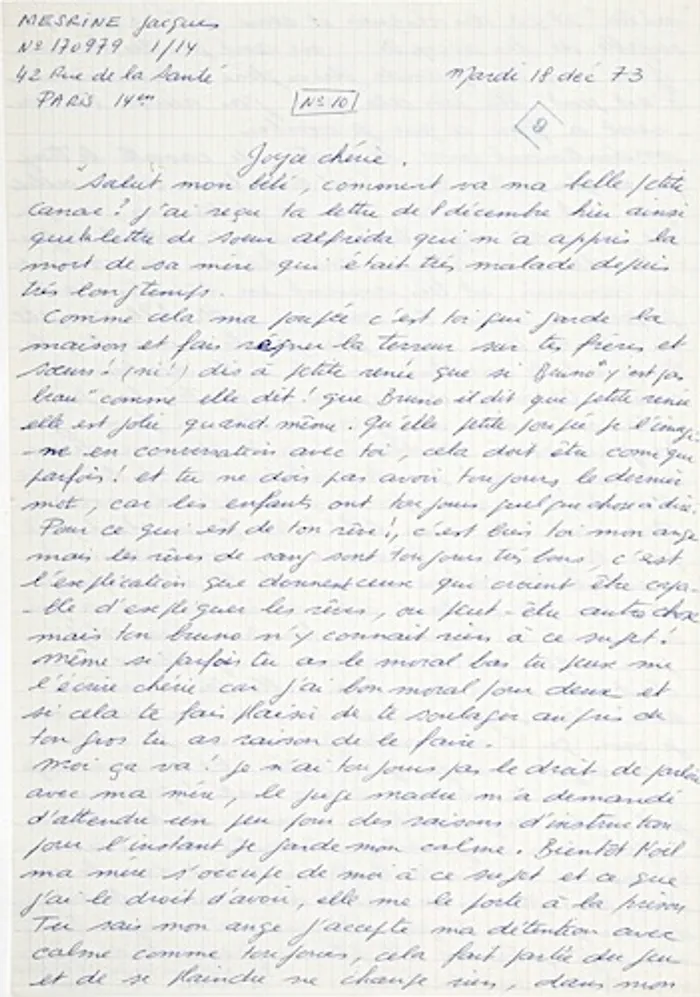 MESRINE Jacques
No 170979 1/14
42 Rue de la Santé
PARIS 14em
Mardi 18 déc 73
No 10
Joyce chérie.
Salut mon bébé, comment va ma belle petite
canac? j'ai reçu ta lettre de 8 décembre hier ainsi
que la lettre de soeur alfréda qui m'a appris la
mort de sa mère qui était très malade depuis
très longtemps.
Comme cela ma poupée c'est toi qui garde la
maison et fais régner la terreur sur tes freres et
soeurs! dis à petite renée que si Bruno "y'est pas
beau" comme elle dit! que Bruno il dit que petite renée
elle est jolie quand même. Qu'elle petite poupée je l'imagi-
-ne en conversation avec toi, cela doit être comique
parfois! et tu ne dois pas avoir toujours le dernier
mot, car les enfants ont toujours quelque chose à dire.
Pour ce qui est de ton rêve!, c'est bien toi mon ange
mais les rêves de sang sont toujours très bons, c'est
l'explication que donnent ceux qui croient être capa-
-ble d'expliquer les rêves, ou peut-être autre chose
mais ton bruno n'y connait rien à ce sujet!
même si parfois tu as le moral bas tu peux me
l'écrire chérie car j'ai bon moral pour deux et
si cela te fais plaisir de te soulager auprès de
ton gros tu as raison de le faire.
Moi ça va! je n'ai toujours pas le droit de parloir
avec ma mère, le juge madre m'a demandé
d'attendre un peu pour des raisons d'instruction
pour l'instant je garde mon calme. Bientôt Noël
ma mère s'occupe de moi à ce sujet et ce que
j'ai le droit d'avoir, elle me le porte à la prison
Tu sais mon ange j'accepte ma détention avec
calme comme toujours, cela fait partie du jeu
et de se plaindre ne change rien, dans mon